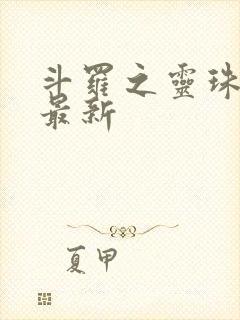 斗羅之靈珠
最新
夏甲